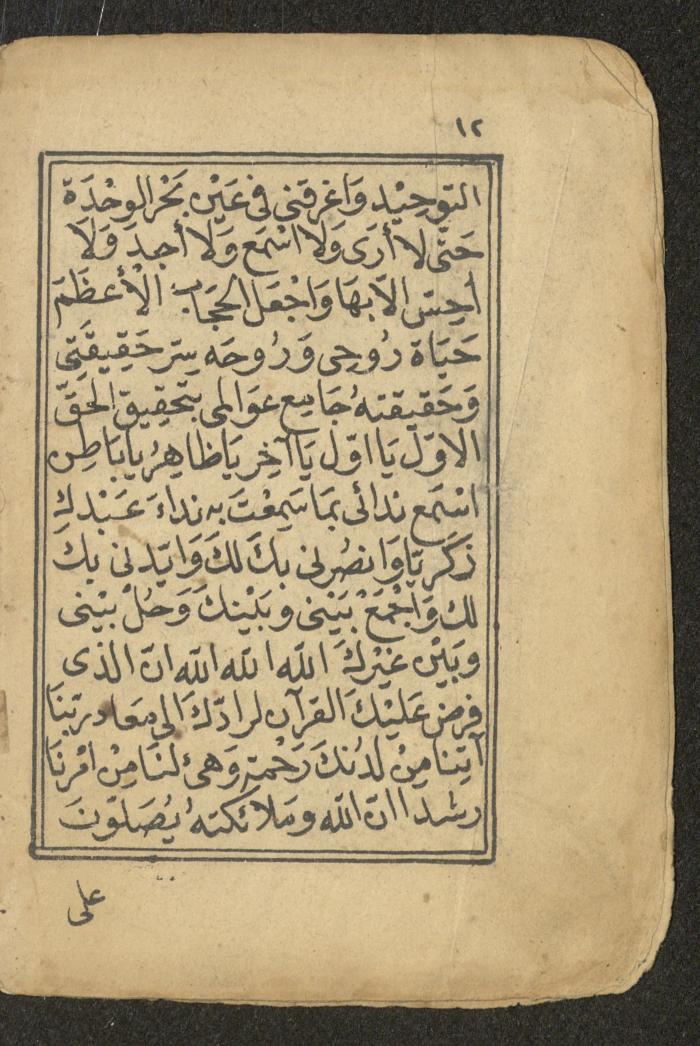 ١٢
التوحيد وَاغرقنى فى عَيْن بَحْر الوحْدَة
حَتّى لا أرَى وَلا اسْمَع وَلا أجدَ وَلَا
اُحِسّ الّا بهَا وَاجْعَل الحجَاب الْأعظَمَ
حَيَاة رُوحِى وَرُوحَه سِرّ حَقِيقَتى
وَحَقيقتهُ جَامِع عوَالمى بتحقيق الحَقّ
الاوّل يَا اوّل يَا آخِر يَا ظَاهِرُ يا بَاطِن
اسْمَع ندائى بمَا سَمِعْتَ به نداءَ عَبْدكِ
زكَرِيّا وَانصُرنى بكَ لكَ وَايّدنى بِكَ
لكَ وَاجْمَعْ بَيْنى وبَيْنِكَ وَحُلْ بَيْنى
وبَيْن غيْرِكَ الله الله الله انّ الذى
فرض عَليْكَ القرآن لرادّكَ الى معَاد ربّنَا
آتِنا مِنْ لدُنكَ رَحْمة وَهىئ لنَا مِنْ امْرنَا
رشدا انّ الله وملائكتهُ يُصَلّونَ
على